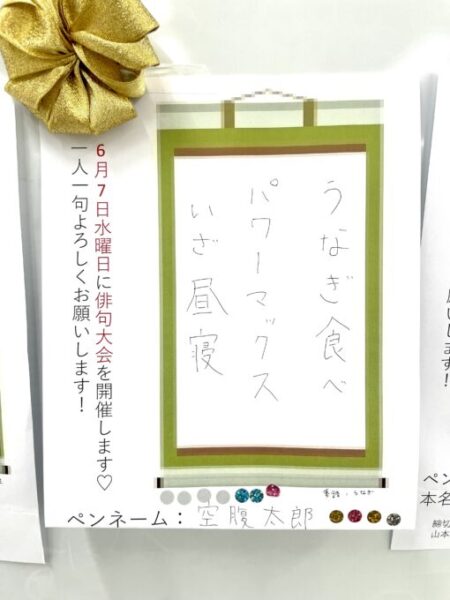 うなぎ食べ
パワーマックス
いざ昼寝
6月7日水曜日に俳句大会を開催します♡
一人一句よろしくお願いします！
季語：うなぎ
ペンネーム：空腹太郎
します！
ペン
本名
締切
山本